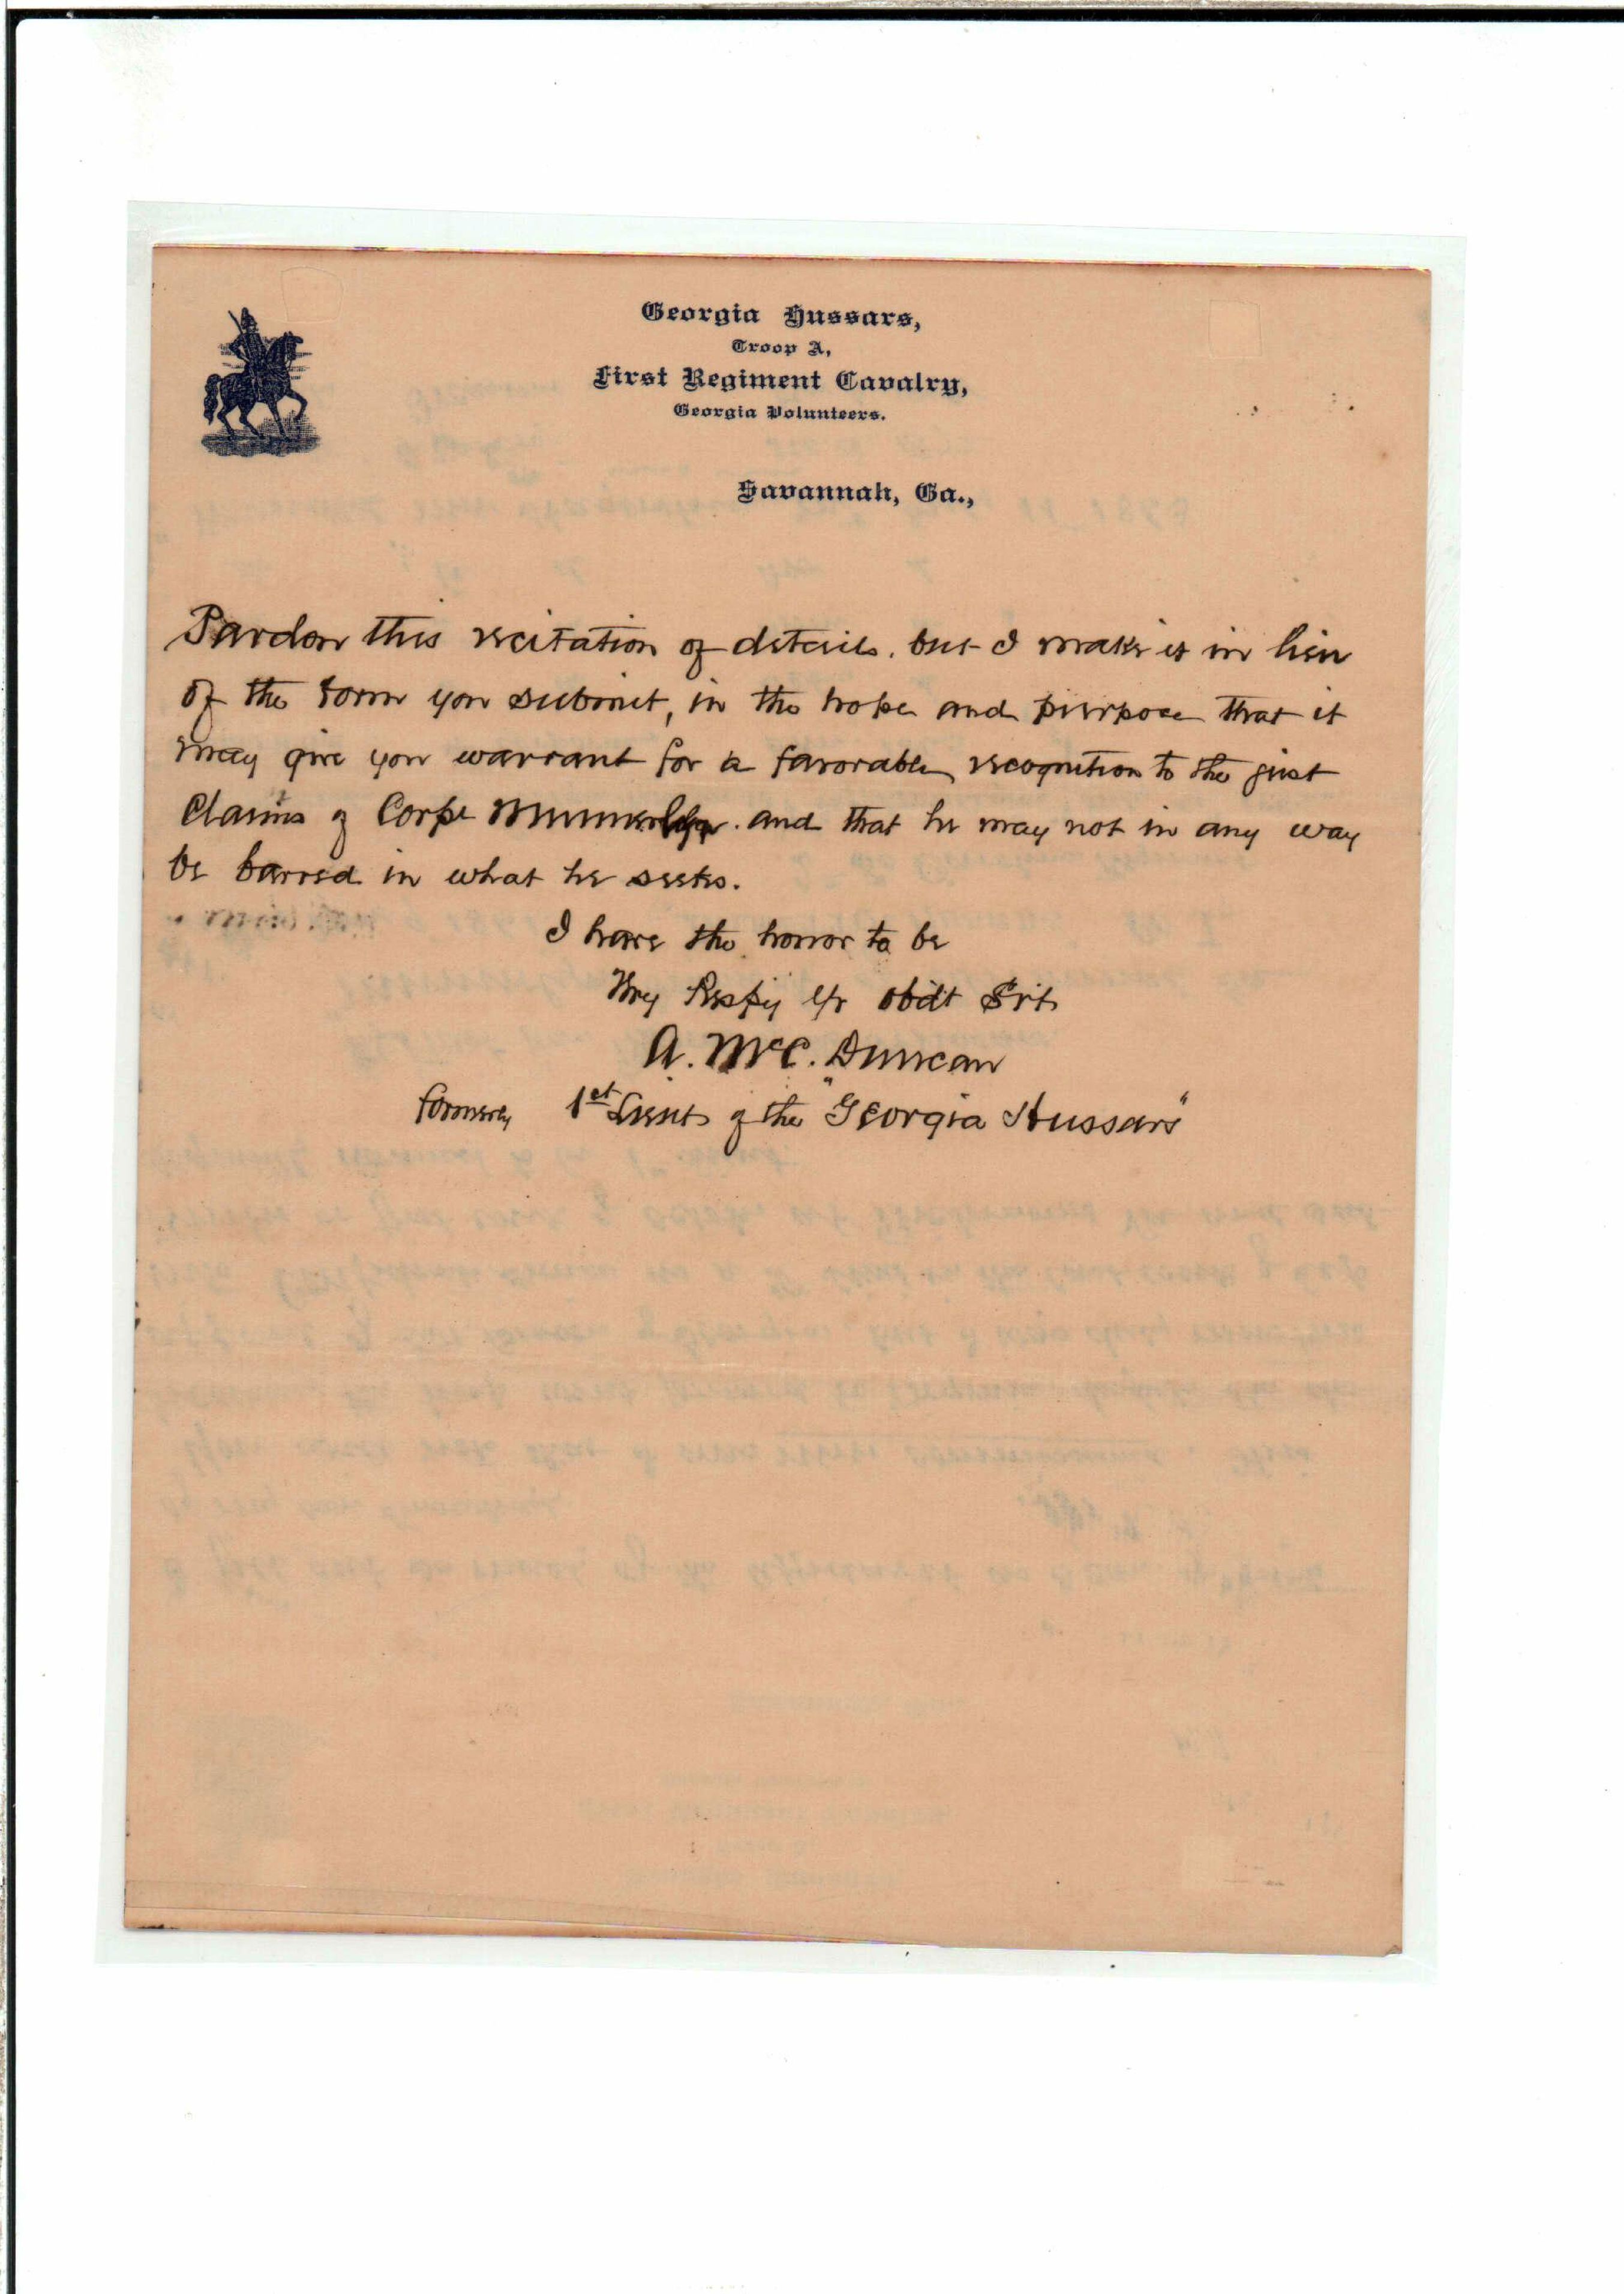 Georgia Hussars,
Troop A,
First Regiment Cavalry,
Georgia Volunteers.
Savannah, Ga.,
Pardon this recitation of details. but I make it in lieu
of the form you submit, in the hope and purpose that it
may give you warrant for a favorable recognition to the just
Claims of Corpl and that he may not in any way
be barred in what he seeks.
I have the honor to be
Very Respy yr obdt Svt
A. McC. Duncan
formerly 1st Lieut of the "Georgia Hussars"